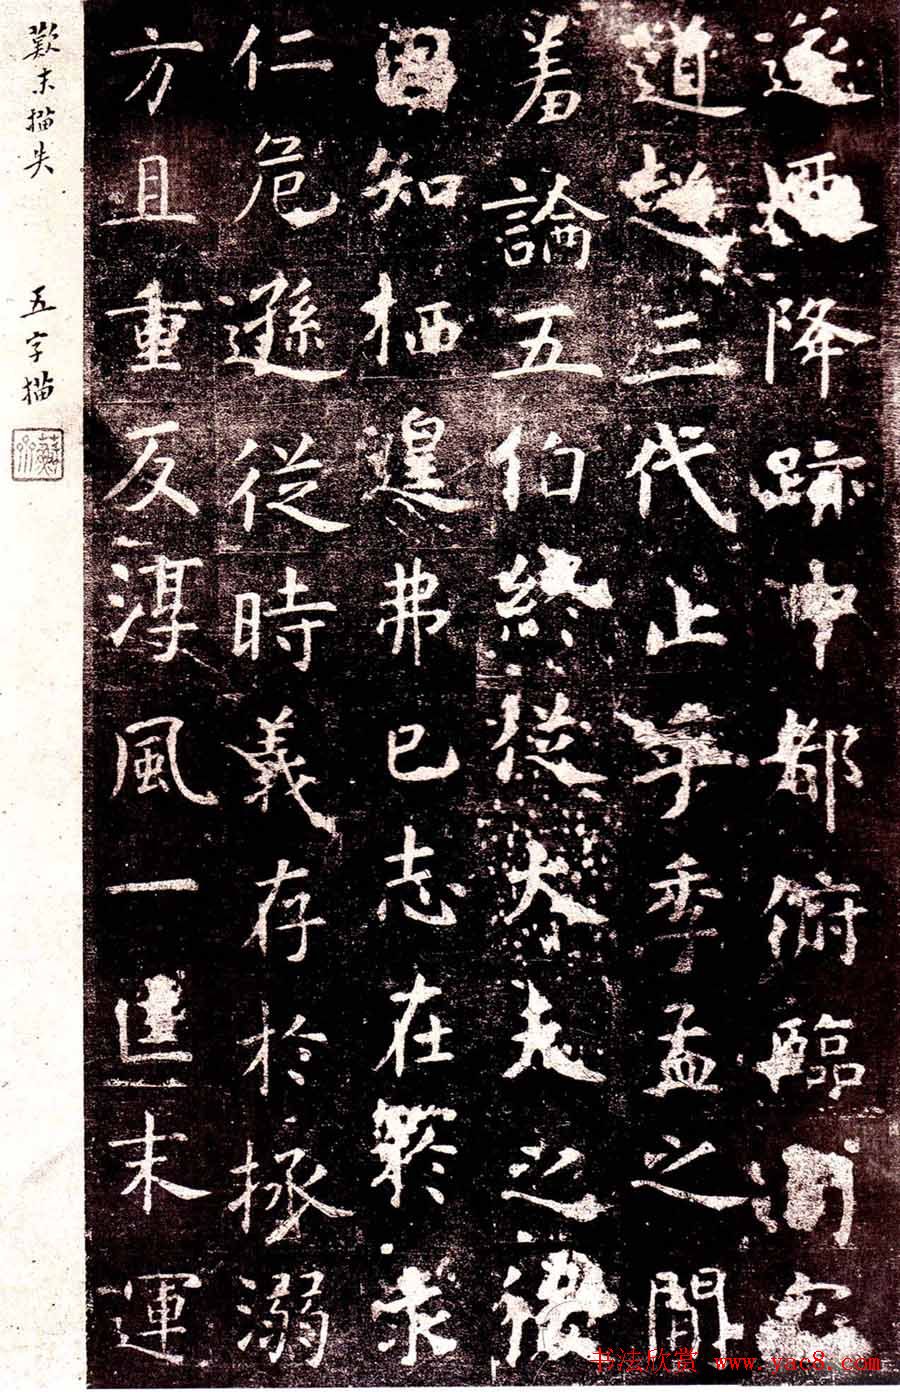 遂降跡中都俯臨司寇
道超三代止乎季孟之間
羞論五伯終從大夫之後
固知栖遑弗已志在於求
仁危遜從時義存於拯溺
方且重反淳風一匡末運
歎末描失 五字描
书法欣赏 www.yac8.com